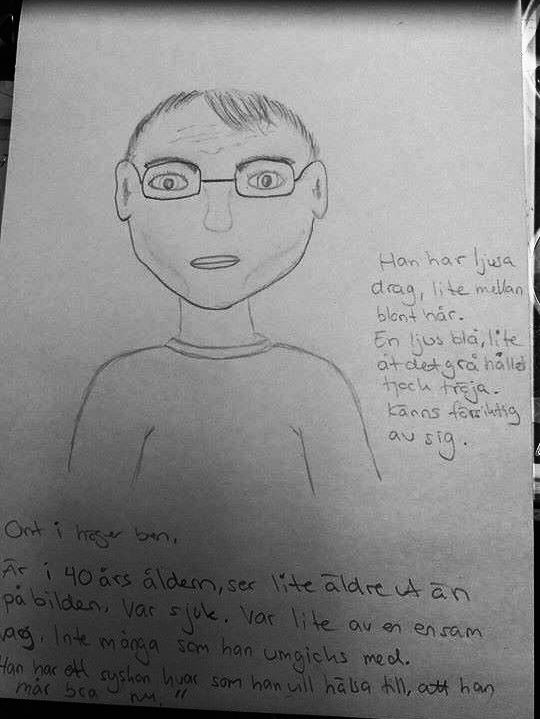 Han har ljusa
drag, lite mellan
blont hår.
En ljus blå, lite
åt det grå hållet
tjock tröja.
Känns försiktig
av sig.
Ont i höger ben.
Är i 40 års åldern, ser lite äldre ut än
på bilden. Var sjuk. Var lite av en ensam
Inte många som han umgicks med.
Han har ett syskon kvar som han vill hälsa till, att han
mår bra nu."